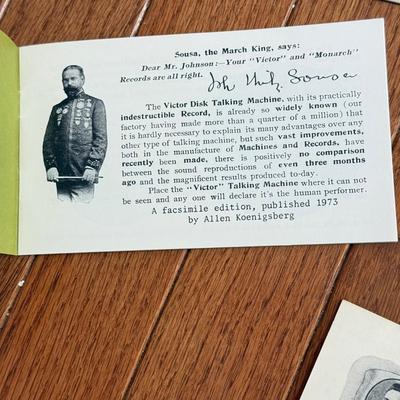 Sousa, the March King, says:
Dear Mr. Johnson:—Your "Victor" and "Monarch"
Records are all right.
John Philip Sousa
The Victor Disk Talking Machine, with its practically
indestructible Record, is already so widely known (our
factory having made more than a quarter of a million) that
it is hardly necessary to explain its many advantages over any
other type of talking machine, but such vast improvements,
both in the manufacture of Machines and Records, have
recently been made, there is positively no comparison
between the sound reproductions of even three months
ago and the magnificent results produced to-day.
Place the "Victor" Talking Machine where it can not
be seen and any one will declare it's the human performer.
A facsimile edition, published 1973
by Allen Koenigsberg